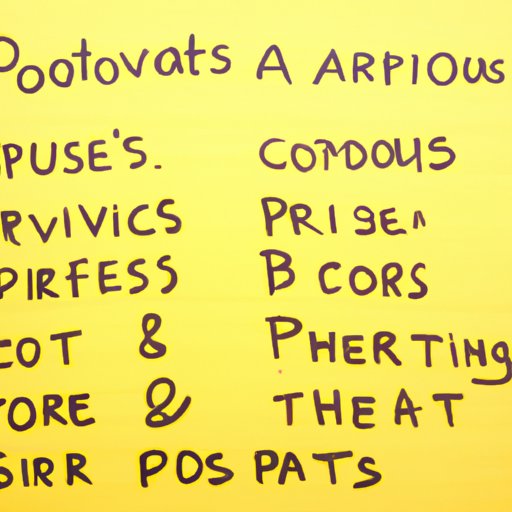 Pootovats A ARPIOUS
PUSE'S. COMDOUS
RVIVICS PRISEN
PIRFESS B CORS
COT & PHERTING
TORE & THEAT
SIRR POSPATS